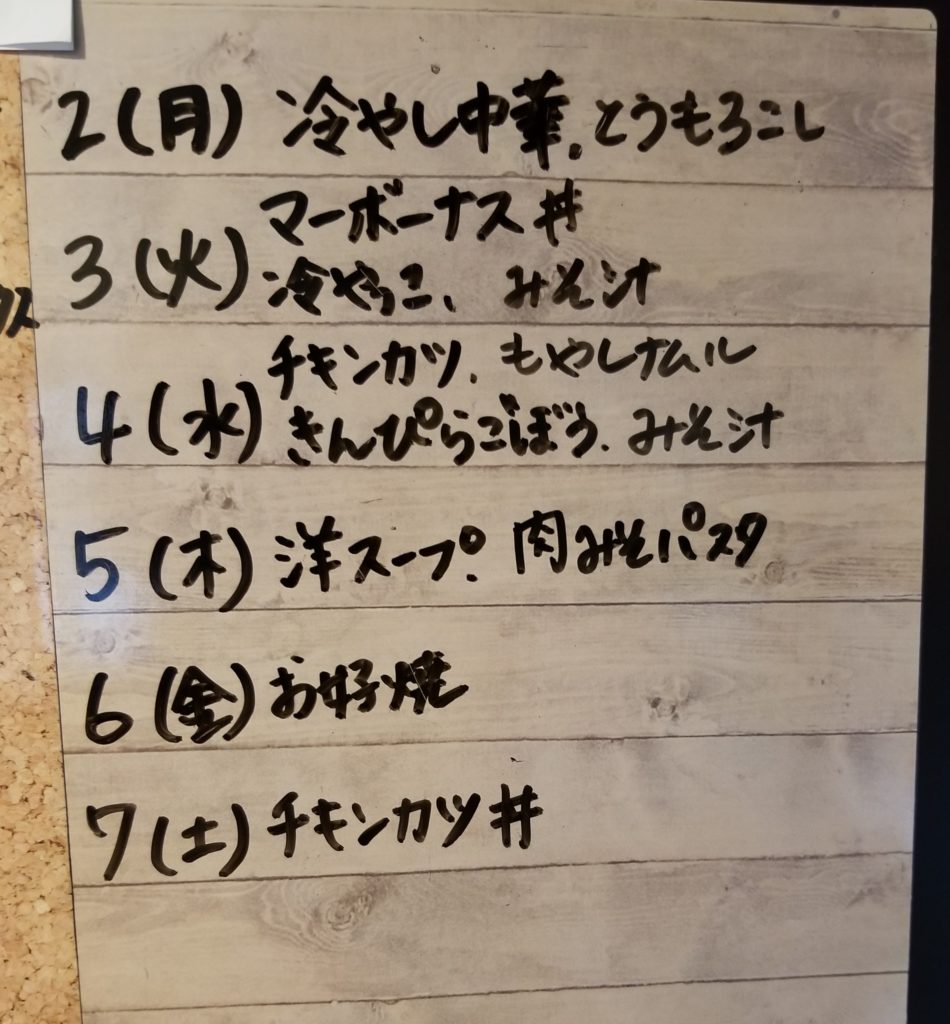 2(月) 冷やし中華、とうもろこし
マーボーナス丼
3(火) 冷やっこ、みそ汁
チキンカツ、もやしナムル
4(水) きんぴらごぼう、みそ汁
5(木) 洋スープ、肉みそパスタ
6(金) お好焼
7(土) チキンカツ丼